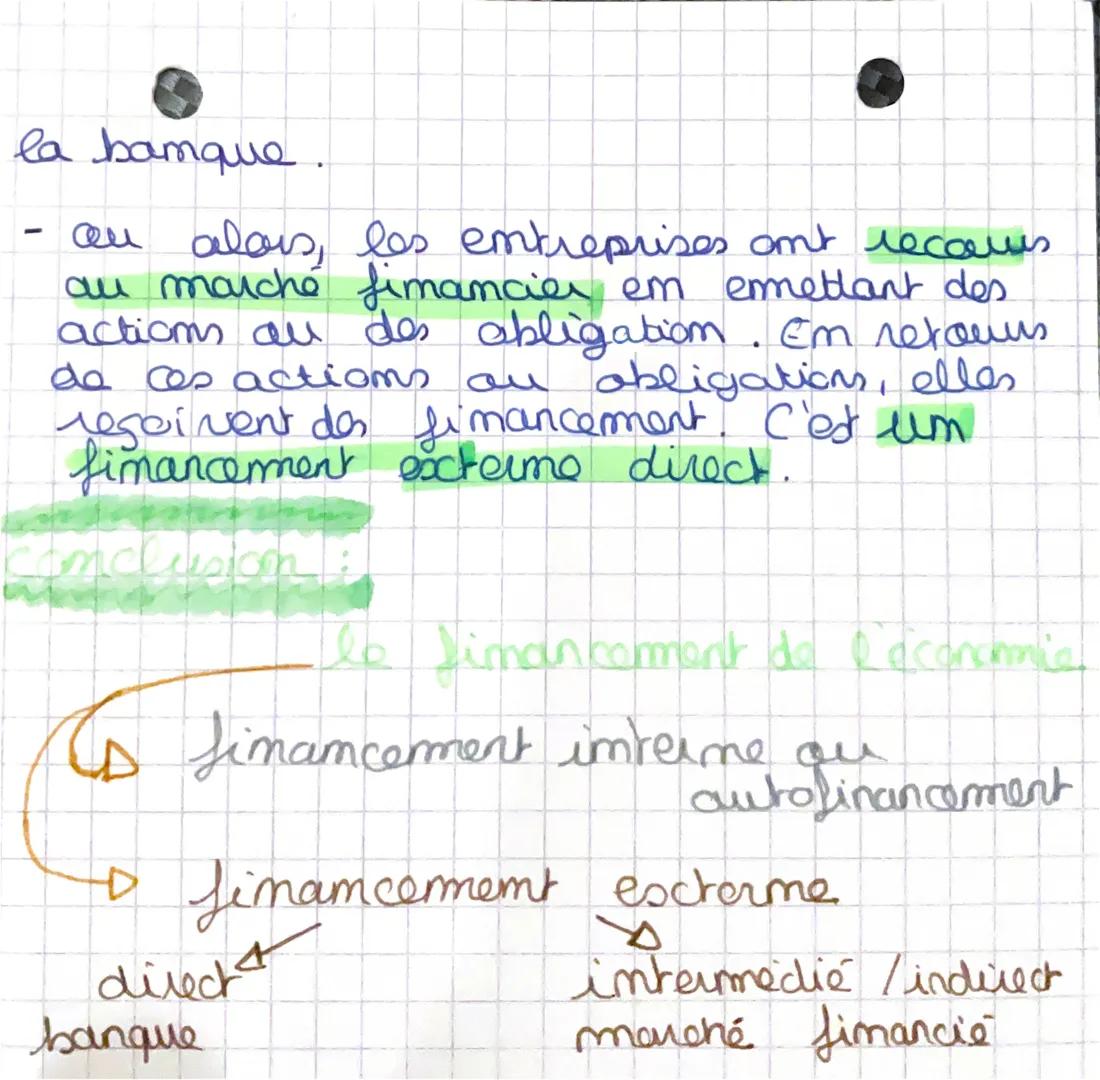 la banque.
- ou alors, les entreprises ont recours
au marché financier en emettant des
actions ou des obligation. En retours
de ces actions ou obligations, elles
reçoivent des financement. C'est un
financement externe direct.
conclusion :
le financement de l'économie
financement interne ou
autofinancement
financement externe
direct
intermédié / indirect
banque
marché financié